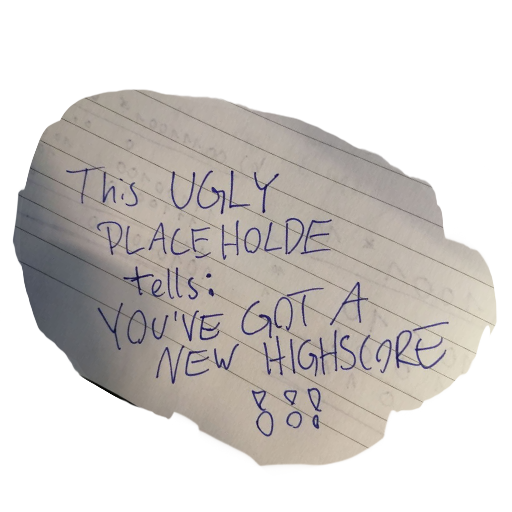 This UGLY
PLACEHOLDE
tells:
YOU'VE GOT A
NEW HIGHSCORE
!!!